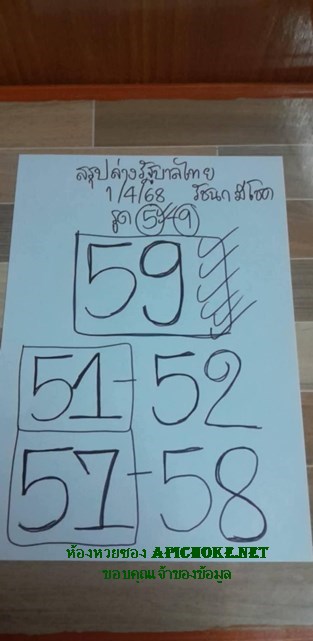 สรุปล่างรัฐบาลไทย
1/4/68 รัชนก มีโชค
รูด 5 9
59
51-52
57-58
ห้องหวยซอง APICHOKE.NET
ขอบคุณเจ้าของข้อมูล